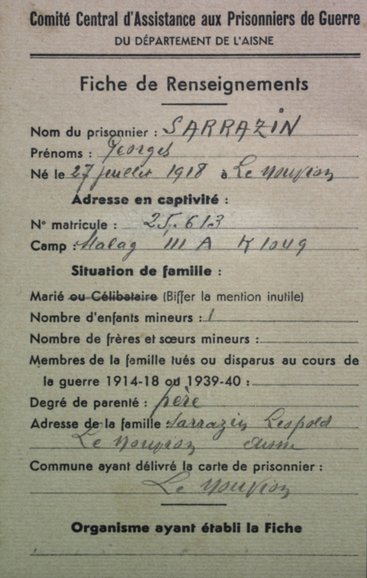 Comité Central d'Assistance aux Prisonniers de Guerre
DU DÉPARTEMENT DE L'AISNE
Fiche de Renseignements
Nom du prisonnier : SARRAZIN
Prénoms : Georges
Né le 27 juillet 1918 à Le Nouvion
Adresse en captivité :
N° matricule : 25.613
Camp : Stalag III A K 1049
Situation de famille :
Marié ou Célibataire (Biffer la mention inutile)
Nombre d'enfants mineurs : 1
Nombre de frères et sœurs mineurs :
Membres de la famille tués ou disparus au cours de
la guerre 1914-18 ou 1939-40 :
Degré de parenté : père
Adresse de la famille : Sarrazin Léopold
Le Nouvion Aisne
Commune ayant délivré la carte de prisonnier :
Le Nouvion
Organisme ayant établi la Fiche